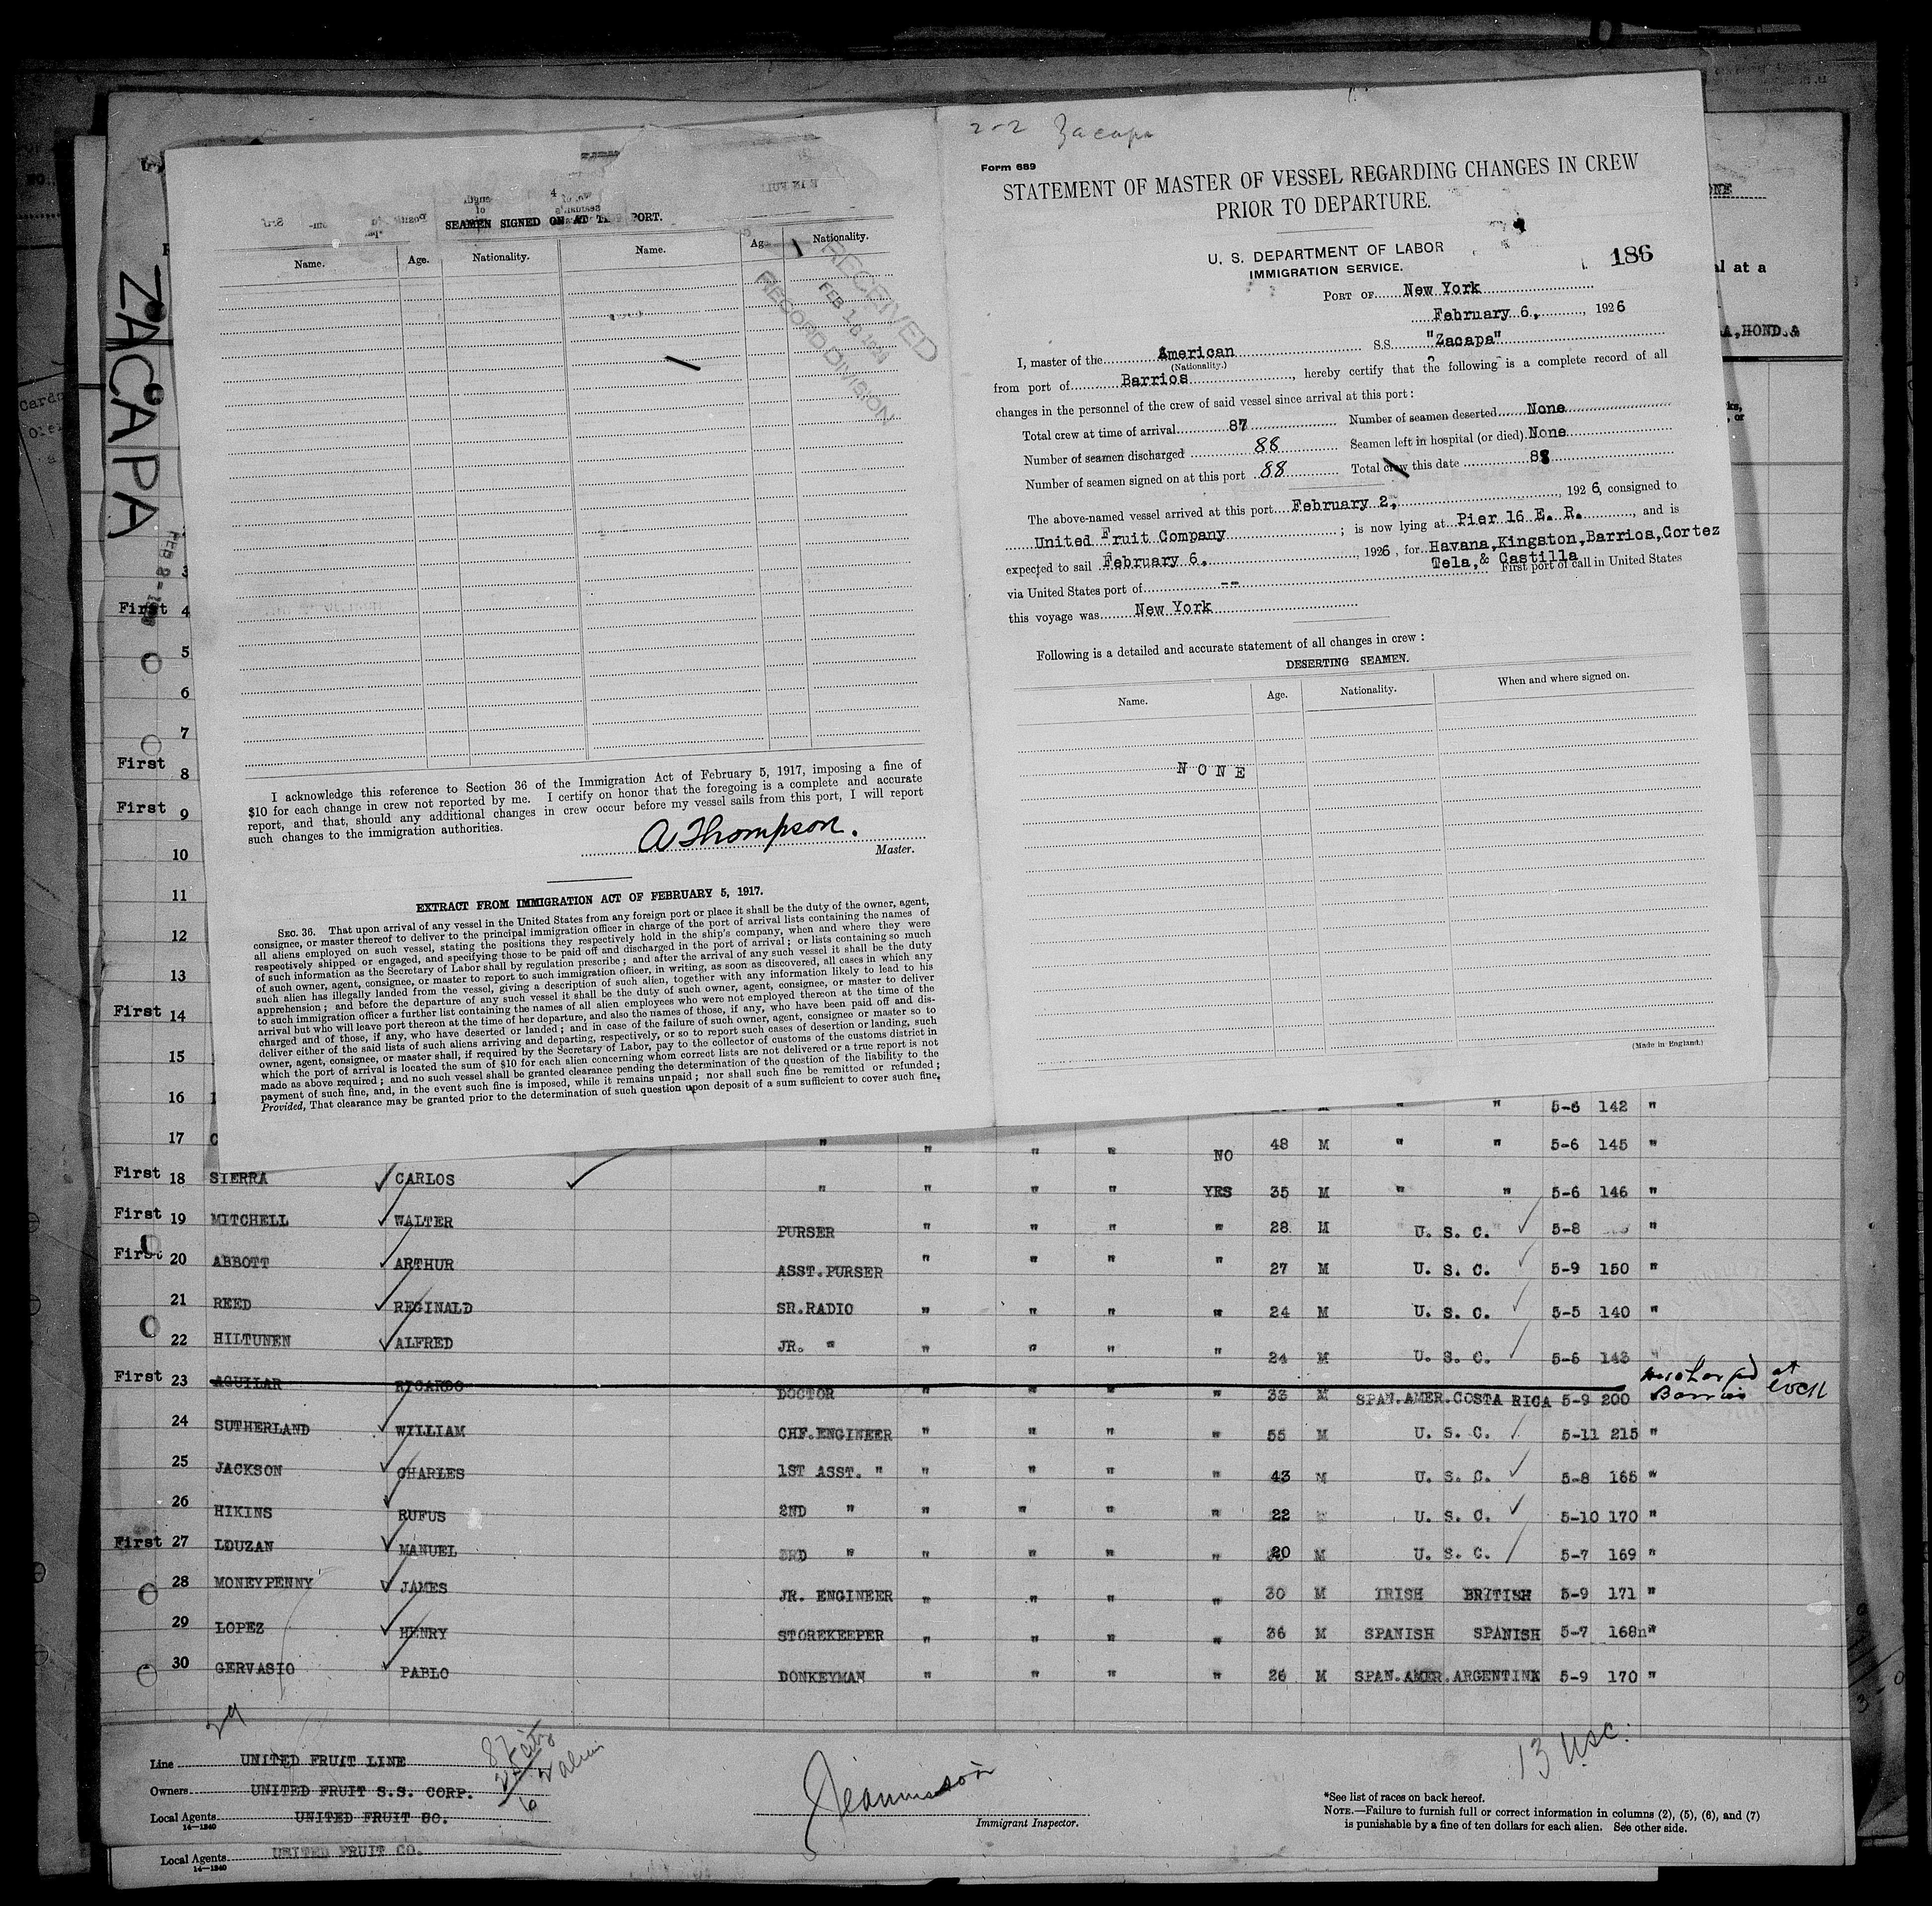 2-2 Zacapa
Form 689
STATEMENT OF MASTER OF VESSEL REGARDING CHANGES IN CREW
PRIOR TO DEPARTURE.
U. S. DEPARTMENT OF LABOR
IMMIGRATION SERVICE.
186
PORT OF New York
February 6, , 1926
I, master of the American S.S. "Zacapa"
(Nationality.)
from port of Barrios , hereby certify that the following is a complete record of all
changes in the personnel of the crew of said vessel since arrival at this port :
Total crew at time of arrival 87 Number of seamen deserted None
Number of seamen discharged 88 Seamen left in hospital (or died) None
Number of seamen signed on at this port 88 Total crew this date 88
The above-named vessel arrived at this port February 2, , 1926, consigned to
United Fruit Company ; is now lying at Pier 16 E. R. , and is
expected to sail February 6, , 1926 , for Havana,Kingston,Barrios,Cortez
Tela,& Castilla
via United States port of -- First port of call in United States
this voyage was New York
Following is a detailed and accurate statement of all changes in crew :
DESERTING SEAMEN.
Name. Age. Nationality. When and where signed on.
NONE
(Made in England.)
SEAMEN SIGNED ON AT THIS PORT.
Name. Age. Nationality. Name. Age. Nationality.
RECEIVED
FEB 10
RECORD DIVISION
I acknowledge this reference to Section 36 of the Immigration Act of February 5, 1917, imposing a fine of
$10 for each change in crew not reported by me. I certify on honor that the foregoing is a complete and accurate
report, and that, should any additional changes in crew occur before my vessel sails from this port, I will report
such changes to the immigration authorities.
A Thompson.
Master.
EXTRACT FROM IMMIGRATION ACT OF FEBRUARY 5, 1917.
SEC. 36. That upon arrival of any vessel in the United States from any foreign port or place it shall be the duty of the owner, agent,
consignee, or master thereof to deliver to the principal immigration officer in charge of the port of arrival lists containing the names of
all aliens employed on such vessel, stating the positions they respectively hold in the ship's company, when and where they were
respectively shipped or engaged, and specifying those to be paid off and discharged in the port of arrival ; or lists containing so much
of such information as the Secretary of Labor shall by regulation prescribe ; and after the arrival of any such vessel it shall be the duty
of such owner, agent, consignee, or master to report to such immigration officer, in writing, as soon as discovered, all cases in which any
such alien has illegally landed from the vessel, giving a description of such alien, together with any information likely to lead to his
apprehension ; and before the departure of any such vessel it shall be the duty of such owner, agent, consignee, or master to deliver
to such immigration officer a further list containing the names of all alien employees who were not employed thereon at the time of the
arrival but who will leave port thereon at the time of her departure, and also the names of those, if any, who have been paid off and dis-
charged and of those, if any, who have deserted or landed ; and in case of the failure of such owner, agent, consignee or master so to
deliver either of the said lists of such aliens arriving and departing, respectively, or so to report such cases of desertion or landing, such
owner, agent, consignee, or master shall, if required by the Secretary of Labor, pay to the collector of customs of the customs district in
which the port of arrival is located the sum of $10 for each alien concerning whom correct lists are not delivered or a true report is not
made as above required ; and no such vessel shall be granted clearance pending the determination of the question of the liability to the
payment of such fine, and, in the event such fine is imposed, while it remains unpaid ; nor shall such fine be remitted or refunded ;
Provided, That clearance may be granted prior to the determination of such question upon deposit of a sum sufficient to cover such fine.
ZACAPA
al at a
A,HOND.&
3
First 4
5
6
7
First 8
First 9
10
11
12
13
First 14
15
16 " " 5-6 142 "
17 " " " " NO 48 M " " 5-6 145 "
First 18 SIERRA CARLOS " " " " YES 35 M " " 5-6 146 "
First 19 MITCHELL WALTER PURSER " " " " 28 M U. S. C. 5-8 "
First 20 ABBOTT ARTHUR ASST.PURSER " " " " 27 M U. S. C. 5-9 150 "
21 REED REGINALD SR.RADIO " " " " 24 M U. S. C. 5-5 140 "
22 HILTUNEN ALFRED JR. " " " " " 24 M U. S. C. 5-6 "
First 23 AGUILAR RICARDO DOCTOR " " " " 33 M SPAN.AMER.COSTA RICA 5-9 200 discharged at Barrios
24 SUTHERLAND WILLIAM CHF.ENGINEER " " " " 55 M U. S. C. 5-11 215 "
25 JACKSON CHARLES 1ST ASST. " " " " " 43 M U. S. C. 5-8 165 "
26 HIKINS RUFUS 2ND " " " " " 22 U. S. C. 5-10 170 "
First 27 LOUZAN MANUEL 3RD " " " " " 20 M U. S. C. 5-7 169 "
28 MONEYPENNY JAMES JR. ENGINEER " " " " 30 M IRISH BRITISH 5-9 171 "
29 LOPEZ HENRY STOREKEEPER " " " " 36 M SPANISH SPANISH 5-7 168n"
30 GERVASIO PABLO DONKEYMAN " " " " 26 M SPAN.AMER.ARGENTINA 5-9 170 "
29
13 USC.
Line UNITED FRUIT LINE
Owners UNITED FRUIT S.S. CORP.
Local Agents UNITED FRUIT CO.
14—1240
Immigrant Inspector.
*See list of races on back hereof.
NOTE.—Failure to furnish full or correct information in columns (2), (5), (6), and (7)
is punishable by a fine of ten dollars for each alien. See other side.
Local Agents UNITED FRUIT CO.
14—1240